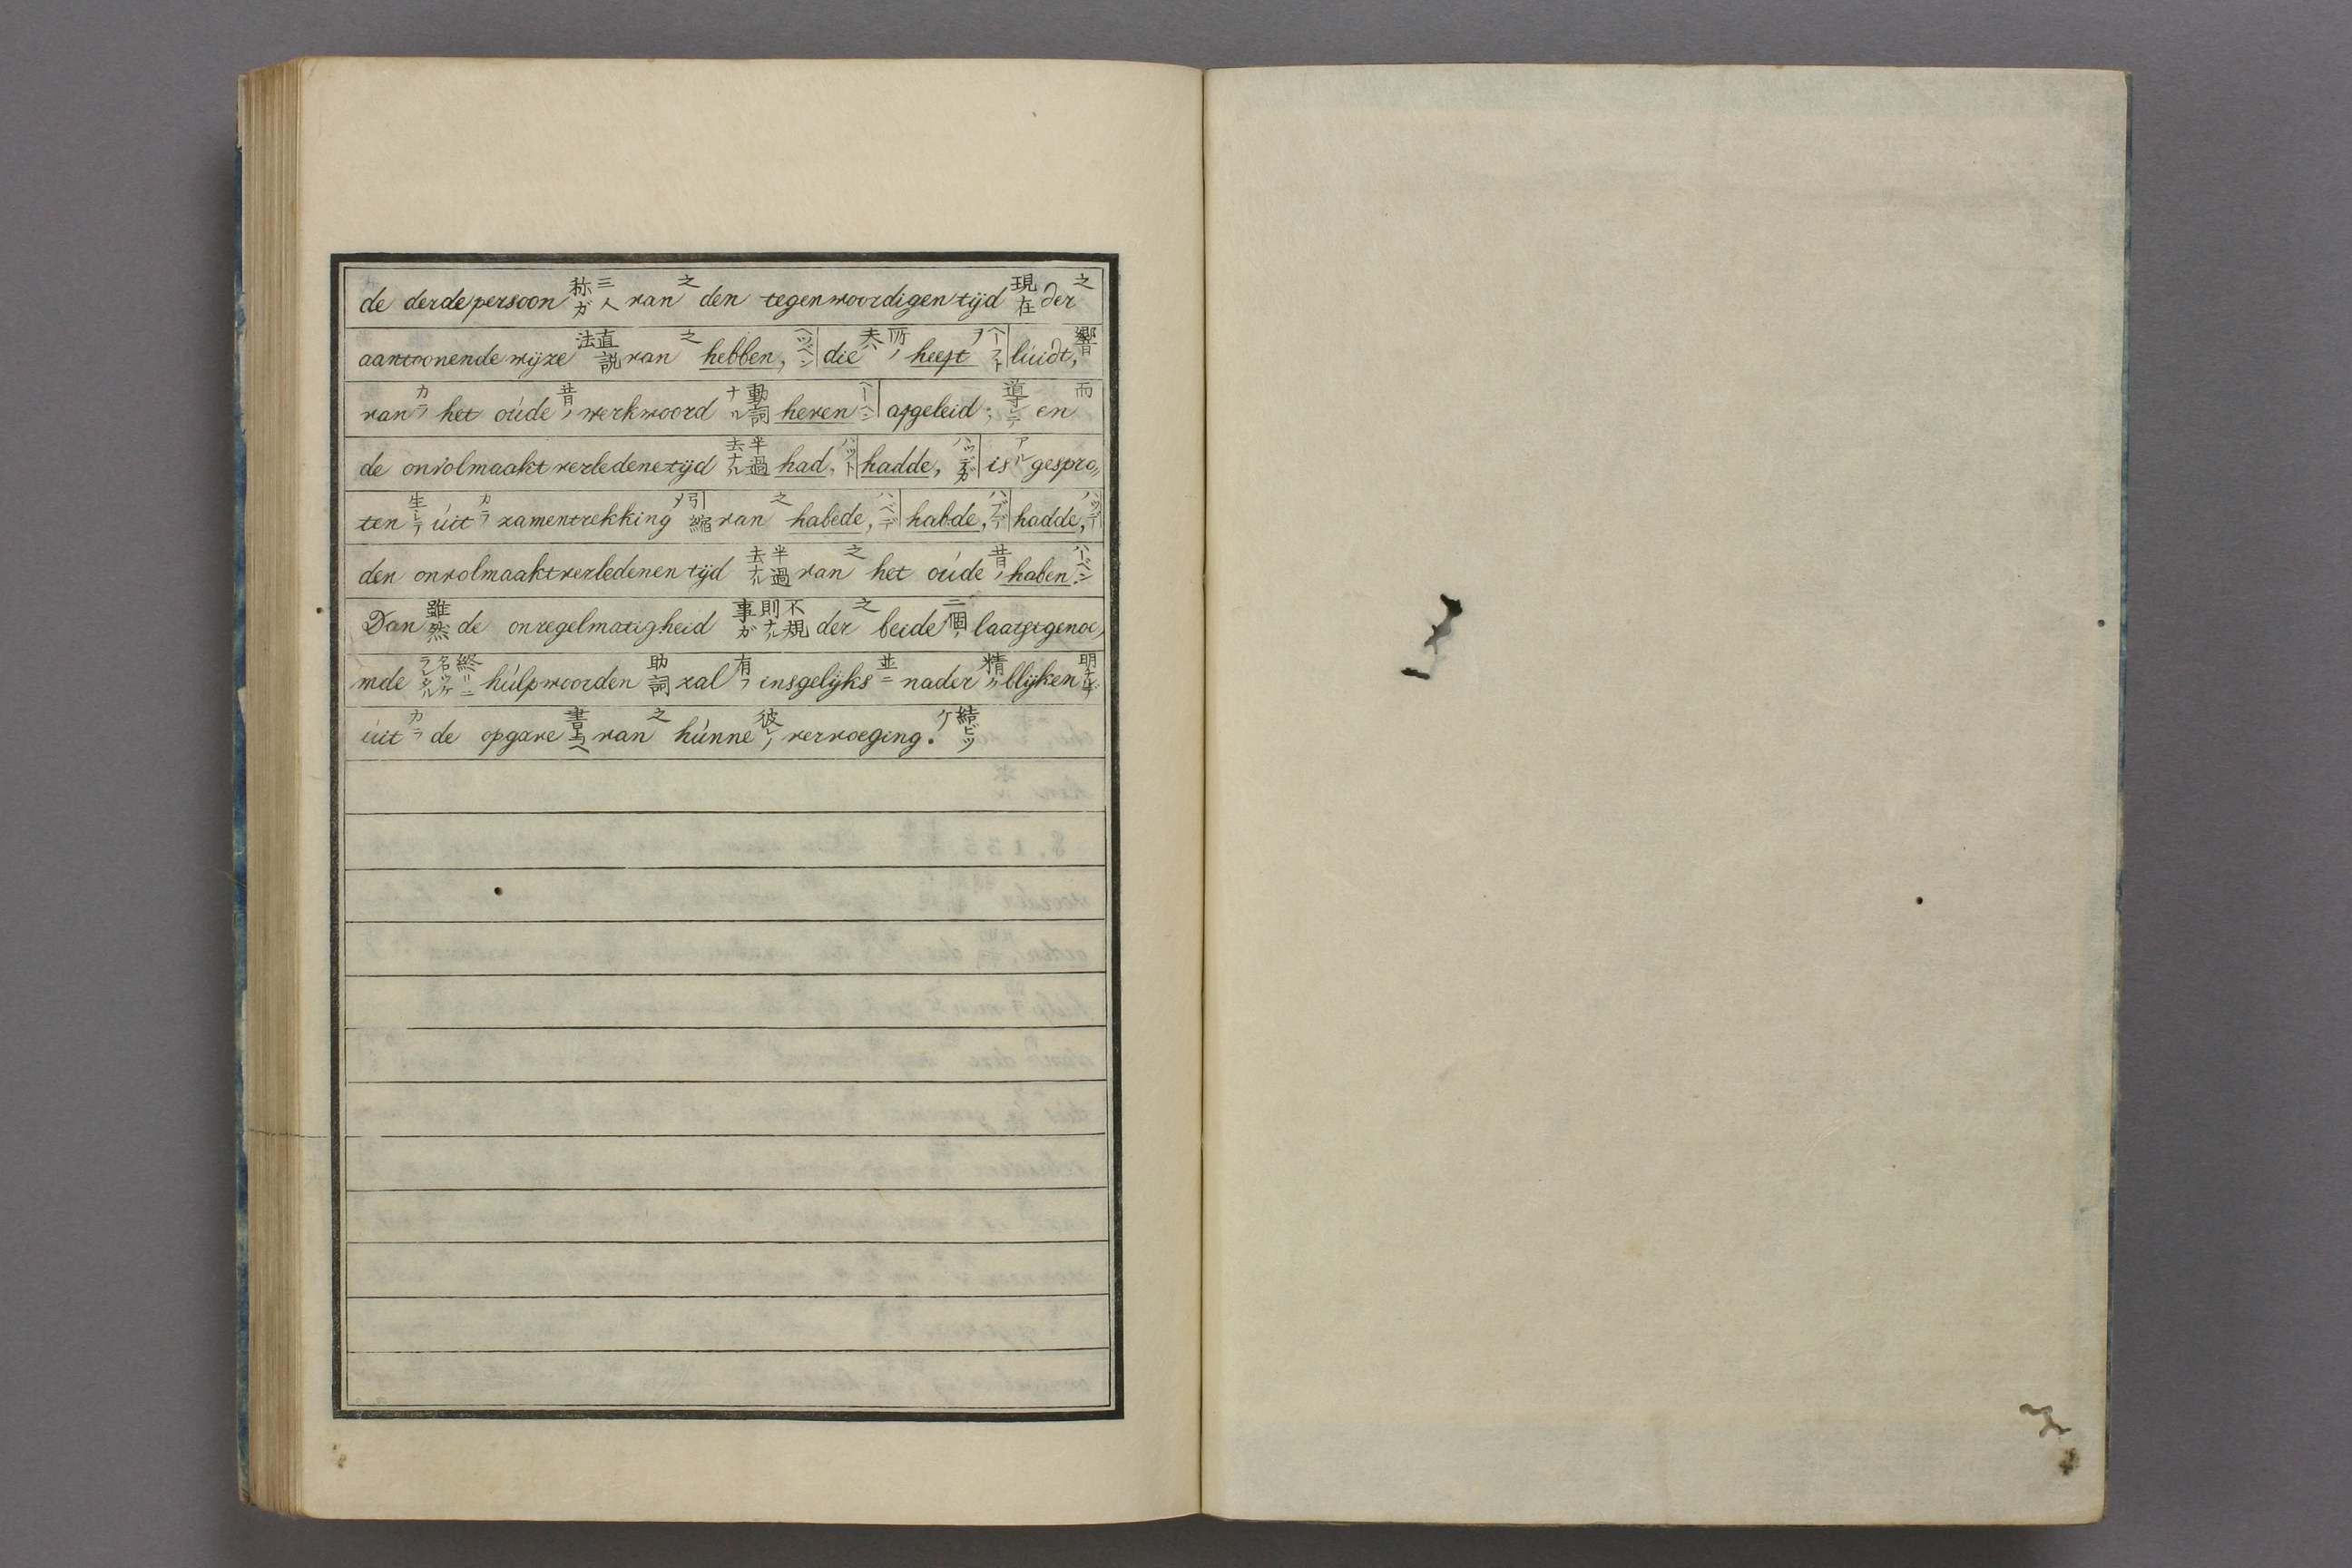 de derde persoon 三人称ガ van 之 den tegenwoordigen tijd 現在 der 之
aantoonende wijze 直説法 van 之 hebben, ヘツベン die 夫ハ 所ノ heeft ヘーフトヲ lúidt, 響
van カラ het oúde 昔ノ werkwoord 動詞ナル heven ヘーヘン afgeleid; 導レテ en 而
de onvolmaakt verledene tijd 半過去ナル had, ハット hadde, ハッデガ is アル gespro„
ten 生レテ úit カラ zamentrekking 引縮ヲ van 之 habede, ハベデ habde, ハブデ hadde, ハッデー
den onvolmaakt verledenen tijd 半過去ナル van 之 het oúde 昔ノ haben. ハーベン
Dan 雖然 de onregelmatigheid 不規則ナル事ガ der 之 beide 二個ノ laatstgenoe„
mde 終リニ名ヅケラレタル húlpwoorden 助詞 zal 有フ insgelijks 並ニ nader 精ク blijken 明ナル
úit カラ de opgave 書 van 之 húnne 彼レノ vervoeging. 結ビツケ